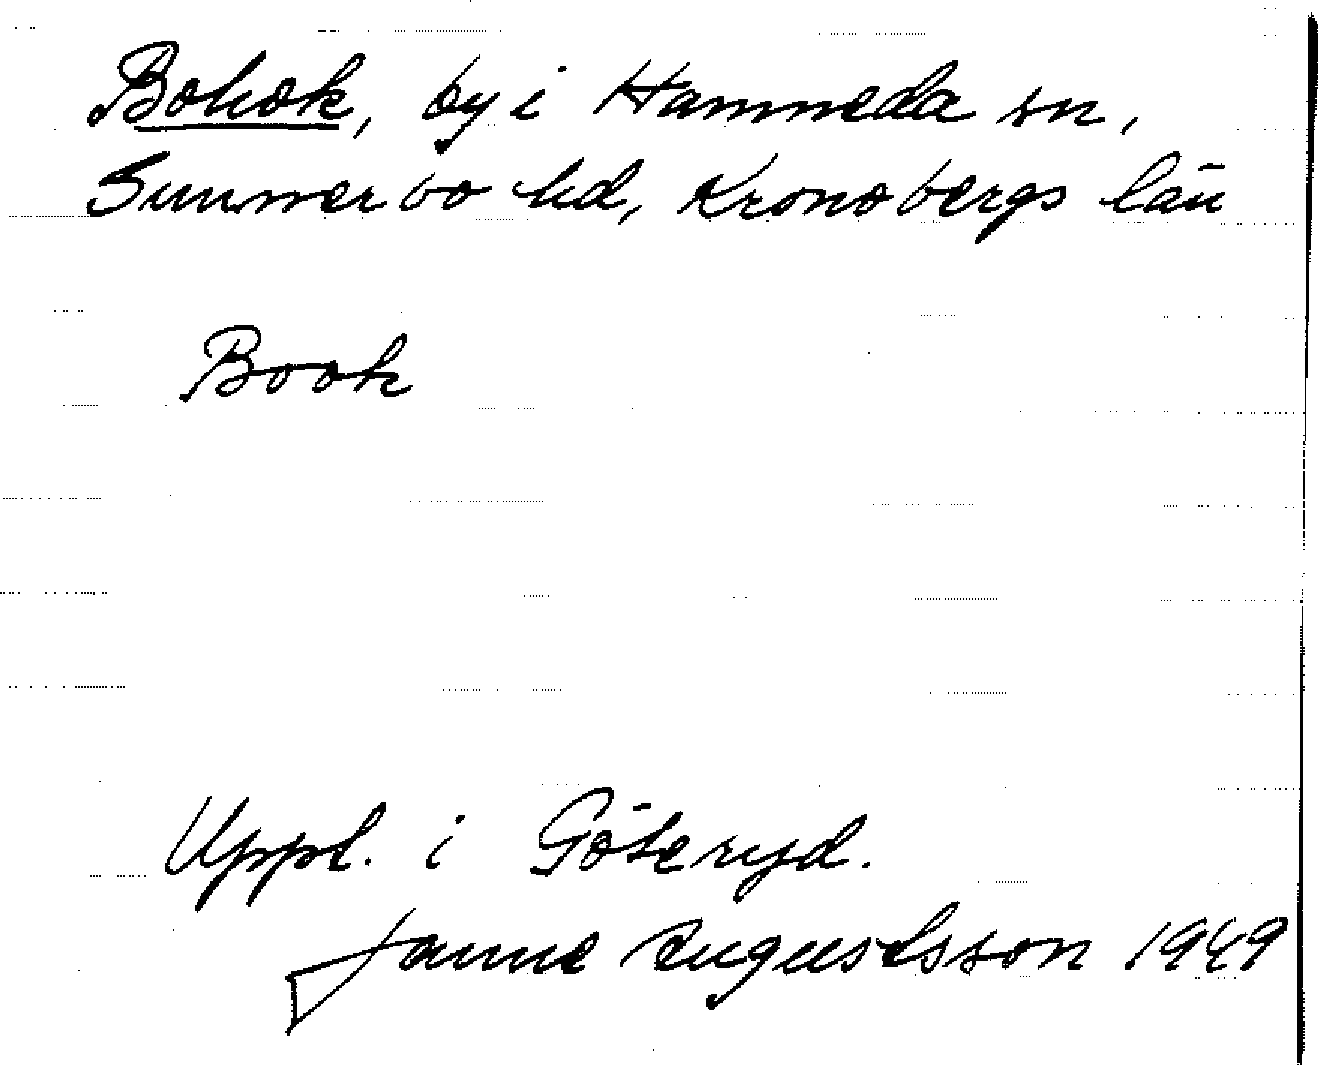 Bohok, by i Hamneda sn,
Sunnerbo hd, Kronobergs län
Book
Uppt. i Göteryd.
Janne Augustsson 1949